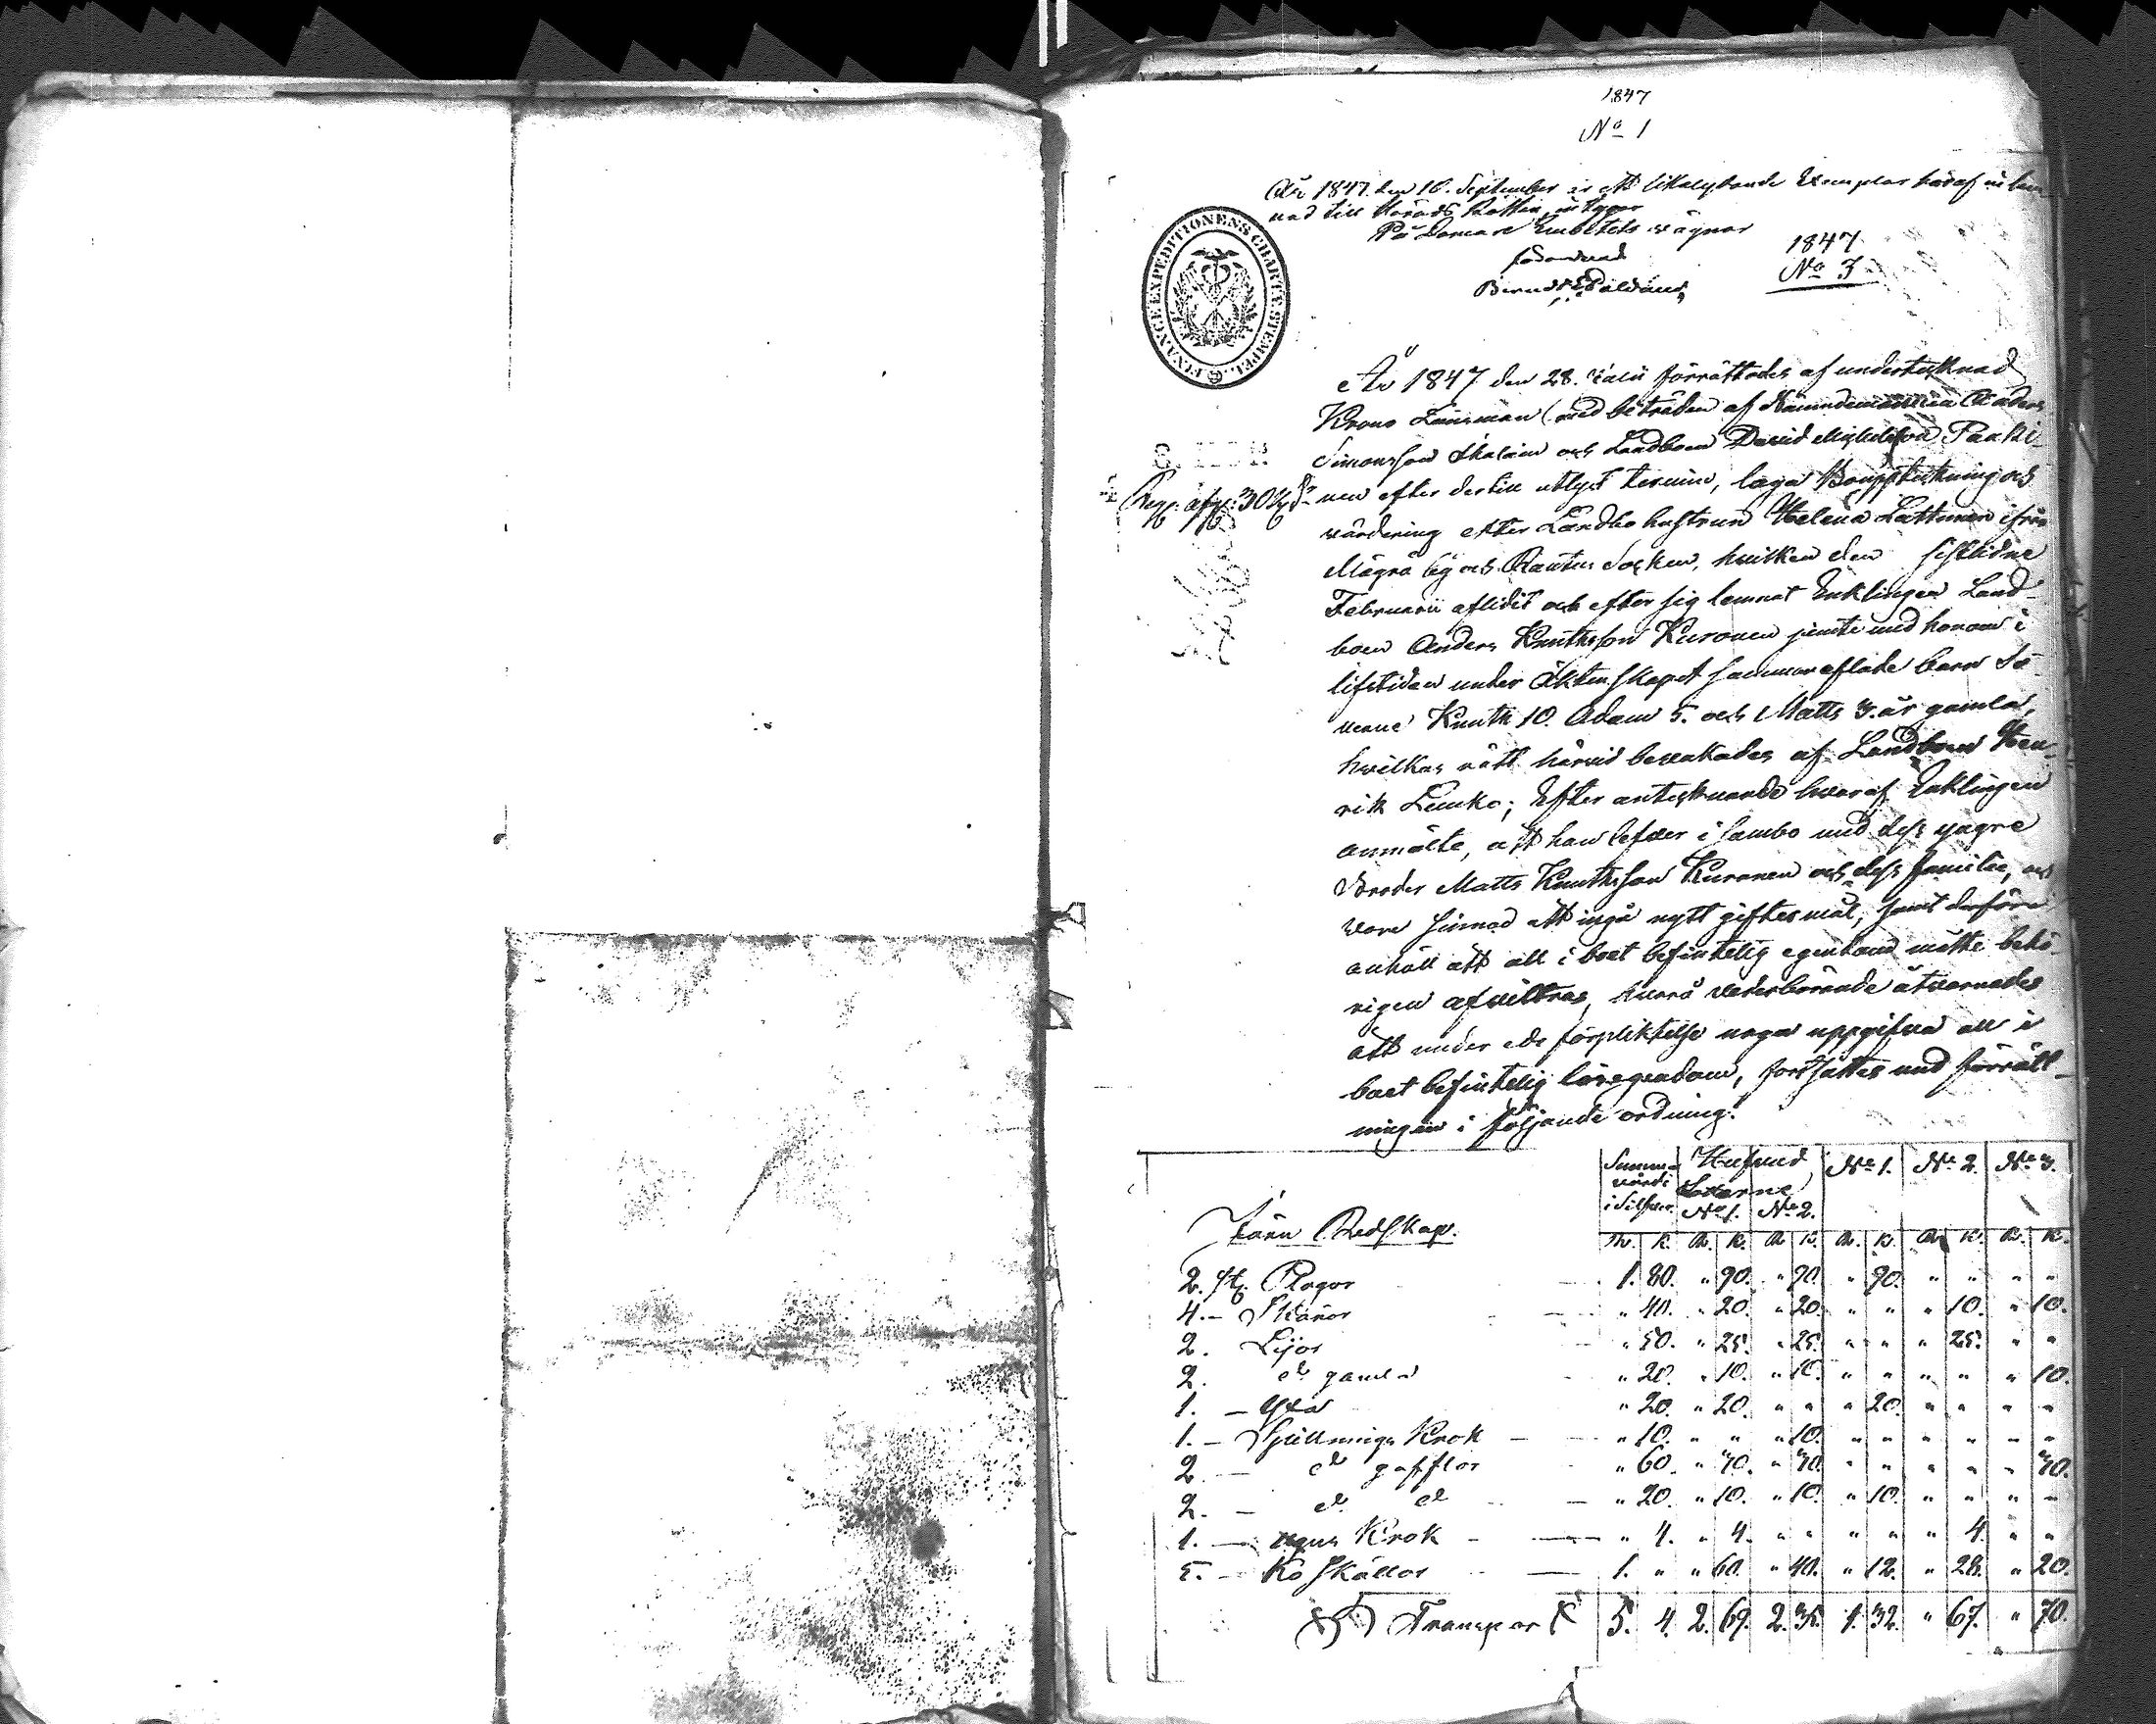 1847
No 1
År 1847 den 16. September är ett likalydande Exemplar häraf in lem
nad till Härads Rätten, intygar
På Domare Embetets vägnar
förordnad
1847
No 3
FINANCE EXPEDITIONENS CHARTÆ STEMPEL
År 1847 den 28. Julii förrättades af undertecknad
Krono Länsman (med biträden af Nämndemännen Anders
Simonsson Ikaläin och Landboen David Michelsson Paaki-
nen efter dertill utlyst termin, laga Bouppteckning och
värdering efter Landbo hustrun Helena Lattunen ifrån
Mägrä by och Rautus Socken, hvilken den sistlidne
Februarii aflidit och efter sig lemnat Enklingen Land-
boen Anders Knuthsson Kuronen jemte med honom i
lifstiden under äktenskapet sammanaflade barn Sö-
nerne Knuth 10. Adam 5. och Matts 3. år gamla,
hvilkas rätt härvid bevakades af Landboen Hen-
rik Lemke; Efter antecknande hvaraf Enklingen
anmälte, att han lefver i sambo med dess yngre
Broder Matts Knuthsson Kuronen och dess familie, och
vore sinnad att ingå nytt giftermål, samt derföre
anhöll att all i boet befintelig egendom måtte behö-
rigen afvittras, hvarå vederbörande åtvarnades
att under eds förpliktelse noga uppgifva all i
boet befintelig lösegendom, fortsattes med förrätt-
ningen i följande ordning:
Summa värde i Silfver. Hufvud Lotterne No 1. No 2. No 1. No 2. No 3.
Järn Redskap. R. K. R. K. R. K. R. K. R. K. R. K.
2. st. Plogar 1. 80. " 90. " 90. " 90. " " " "
4. - Skäror " 40. " 20. " 20. " " " 10. " 10.
2. Lijor " 50. " 25. " 25. " " " 25. " "
2. do gamla " 20. " 10. " 10. " " " " " 10.
1. - Yxa " 20. " 20. " " " 20. " " " "
1. - Krok " 10. " " " 10. " " " " " "
2 - do gafflor " 60. " 30. " 30. " " " " " 30.
2. - do do " 20. " 10. " 10. " 10. " " " "
1. - Krok " 4. " 4. " " " " " 4. " "
5. - Ko skällor 1. " " 60. " 40. " 12. " 28. " 20.
Transport 5. 4. 2. 69. 2. 35. 1. 32. " 67. " 70.